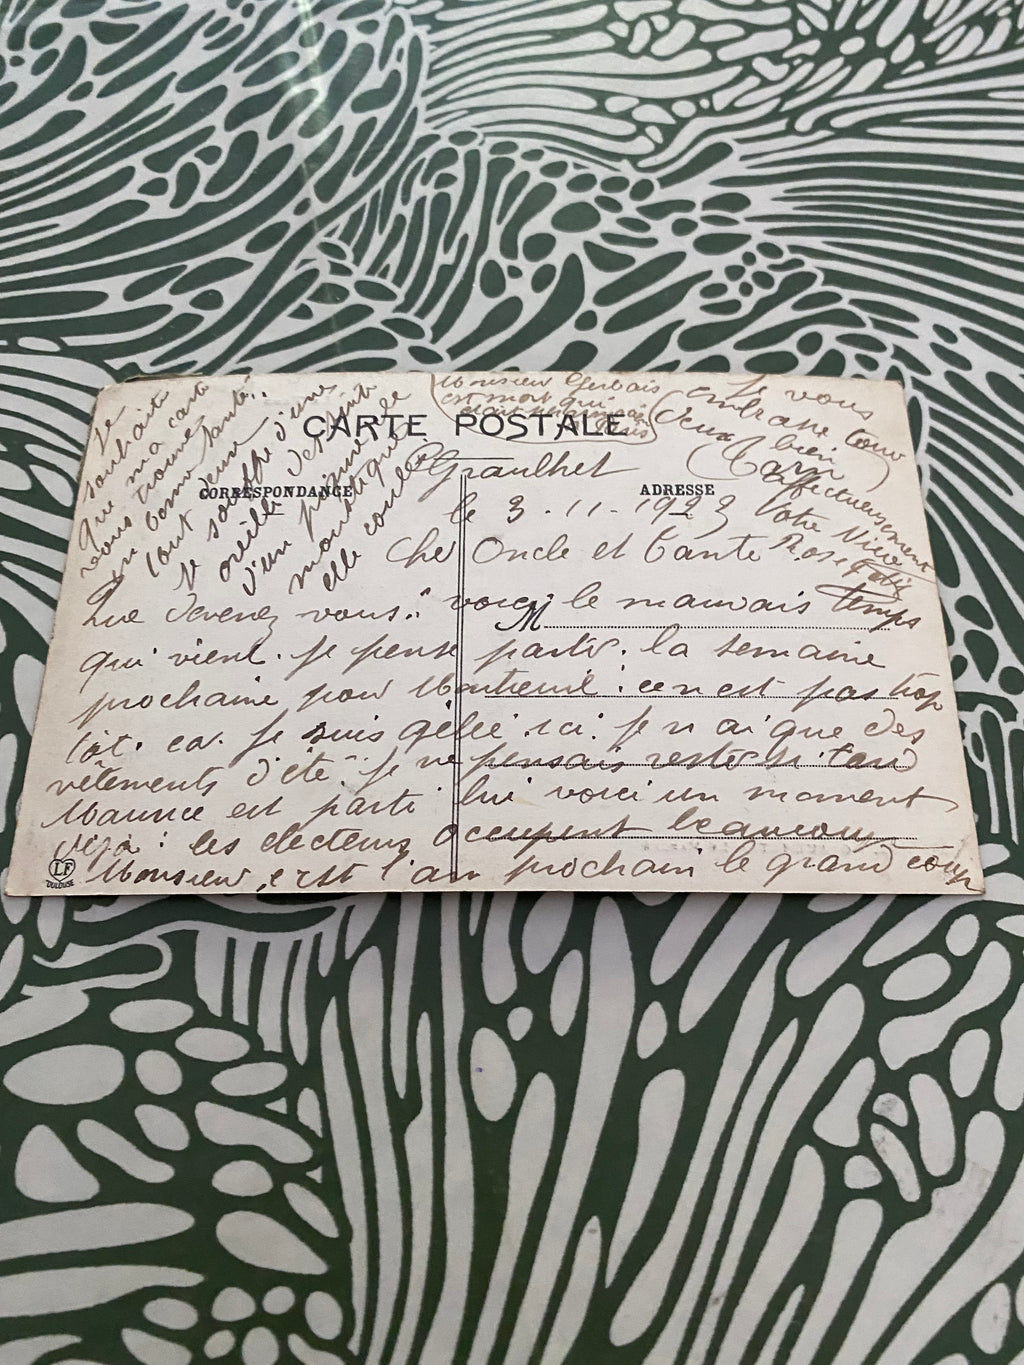 CARTE POSTALE
CORRESPONDANCE
ADRESSE
Graulhet
le 3. 11. 1923
Cher Oncle et Tante
Que devenez vous. voici le mauvais temps
M
qui vient. Je pense partir. la semaine
prochaine pour Montreuil. ce n est pas trop
tôt. car Je suis gelée ici. Je n ai que des
vêtements d'été. Je ne pensais rester si tard
Maurice est parti lui voici un moment
déjà. les electeurs occupent beaucoup
Monsieur, c est l'an prochain le grand coup
LF
TOULOUSE
Je
souhaite
que ma carte
vous trouve
en bonne santé.
tout deux
Je souffre d'une
oreille
d'un
elle coule
Monsieur Gervais
est mort qui
était
Paris
Je vous
embrasse tous
deux bien
affectueusement
Votre Nièce
Rose
Tarn